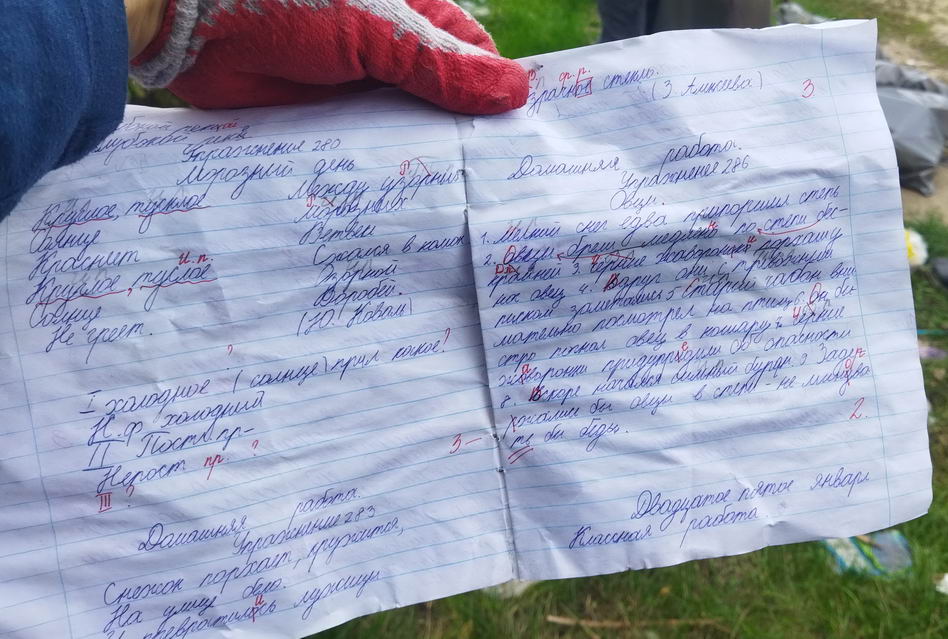 Упражнение 280
Морозный день
Круглое, тусклое
Солнце
Краснеет
Круглое, тусклое
и.п.
Солнце
Не греет.
Между узорных
Морозных
Ветвей
Сжался в комок
Зоркий
Воробей.
(Ю. Коваль)
?
I холодное (солнце) прил какое?
Н.ф. холодный
II Пост. пр-
Непост пр. ?
III ?
3-
Домашняя работа.
Упражнение 283
Снежок порхает, кружится,
На улице бело.
И превратились лужицы
ф. р.
стекло.
(З. Алексева)
3
Домашняя работа.
Упражнение 286
Овцы.
1. Мелкий снег едва припорошил степь
2. Овцы брели медлено по степи бес-
крайней 3. Черние жаворонки
нок овец 4. Вдруг они с тревожным
писком заметались 5 Старый чабан вни
мательно посмотрел на птиц 6. Он бы
стро погнал овец в кошару 7. Черние
жаворонки придупредили об опасности
8. Вскоре начался сильный буран. 9
бы овцы в степи - не миновать
бы беды.
2.
Двадцатое пятое январе
Классная работа.